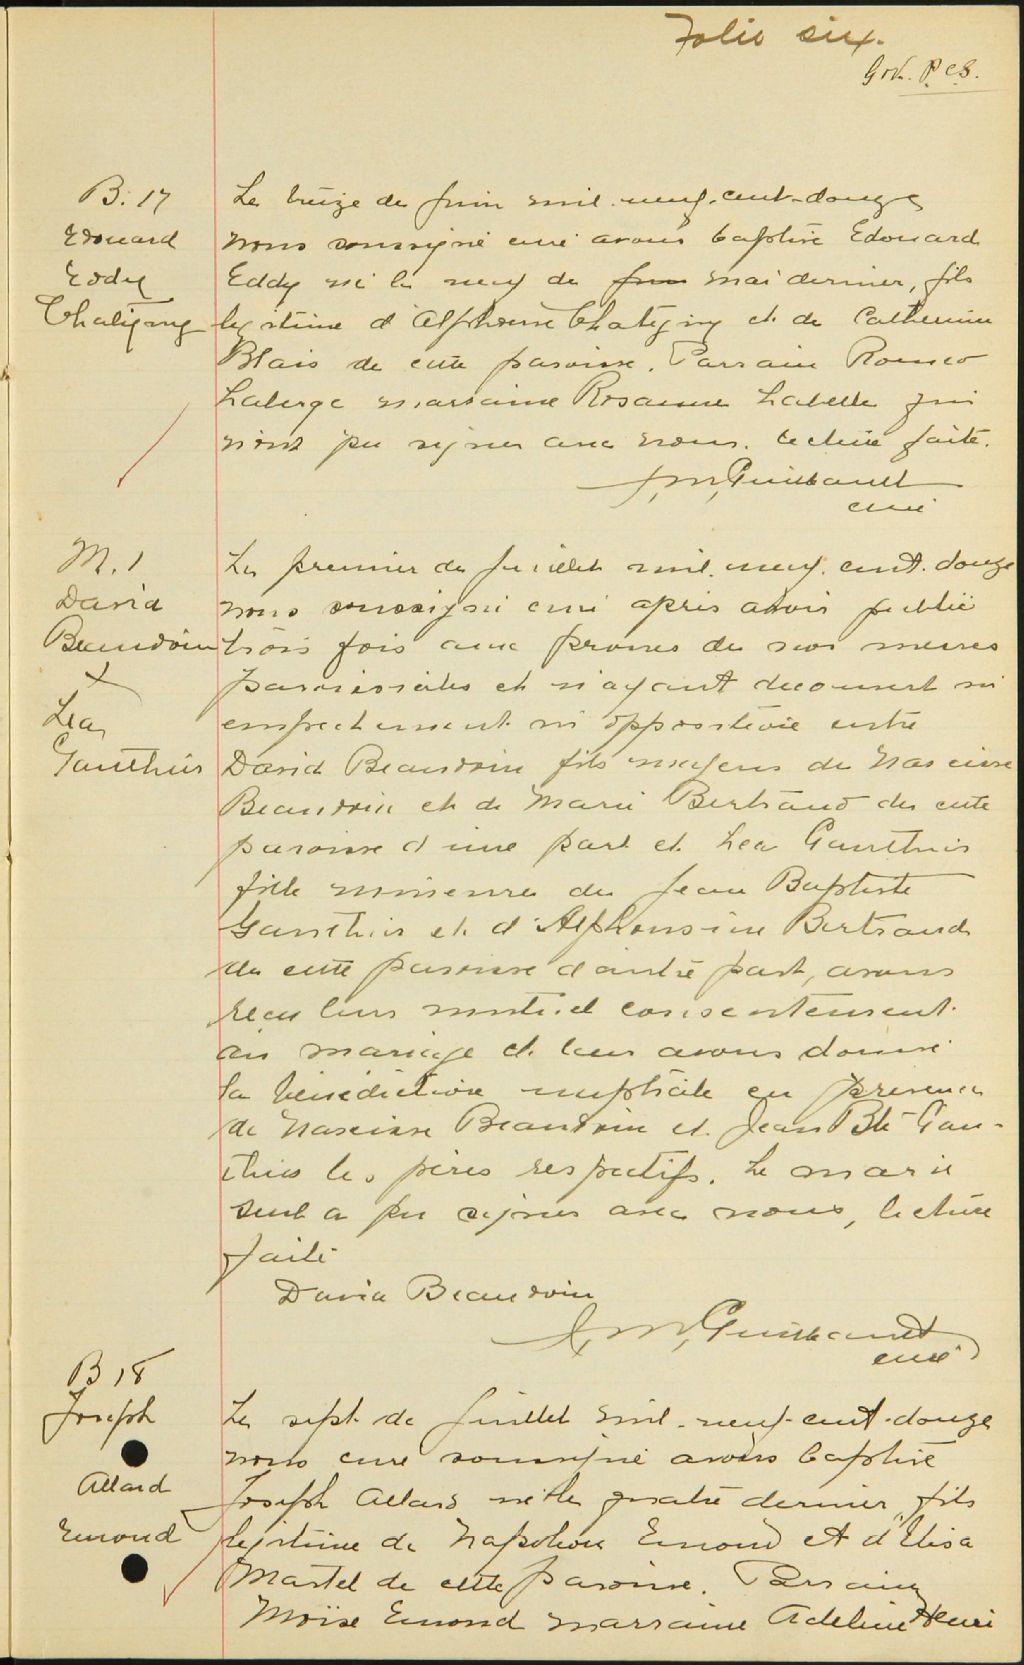 Folio six.
B. 17
Edouard
Eddy
Chatigny
Le treize de juin mil-neuf-cent-douze
nous soussigné curé avons baptisé Edouard
Eddy né le neuf de juin mai dernier, fils
legitime d'Alphonse Chatigny et de Catherine
Blais de cette paroisse. Parrain Romeo
Laberge marraine Rosanna Labelle qui
n'ont pu signer avec nous. lecture faite.
curé
M. 1
David
Beaudoin
x
Lea
Gauthier
Le premier de Juillet mil-neuf-cent-douze
nous soussigné curé après avoir publié
trois fois aux prones de nos messes
paroissiales et n'ayant decouvert ni
empechement ni opposition entre
David Beaudoin fils majeur de Narcisse
Beaudoin et de Marie Bertrand de cette
paroisse d'une part et Lea Gauthier
fille mineure de Jean Baptiste
Gauthier et d'Alphonsine Bertrand
de cette paroisse d'autre part, avons
recu leur mutuel consentement
au mariage et leur avons donné
la bénédiction nuptiale en presence
de Narcisse Beaudoin et Jean Bte Gau-
thier les pères respectifs. Le marié
seul a pu signer avec nous, lecture
faite
David Beaudoin
curé
B 18
Joseph
Allard
Emond
Le sept de juillet mil-neuf-cent-douze
nous curé soussigné avons baptisé
Joseph Allard né le quatre dernier, fils
legitime de Napoleon Emond et d'Elisa
Martel de cette paroisse. Parrain
Moïse Emond marraine Adeline Henri